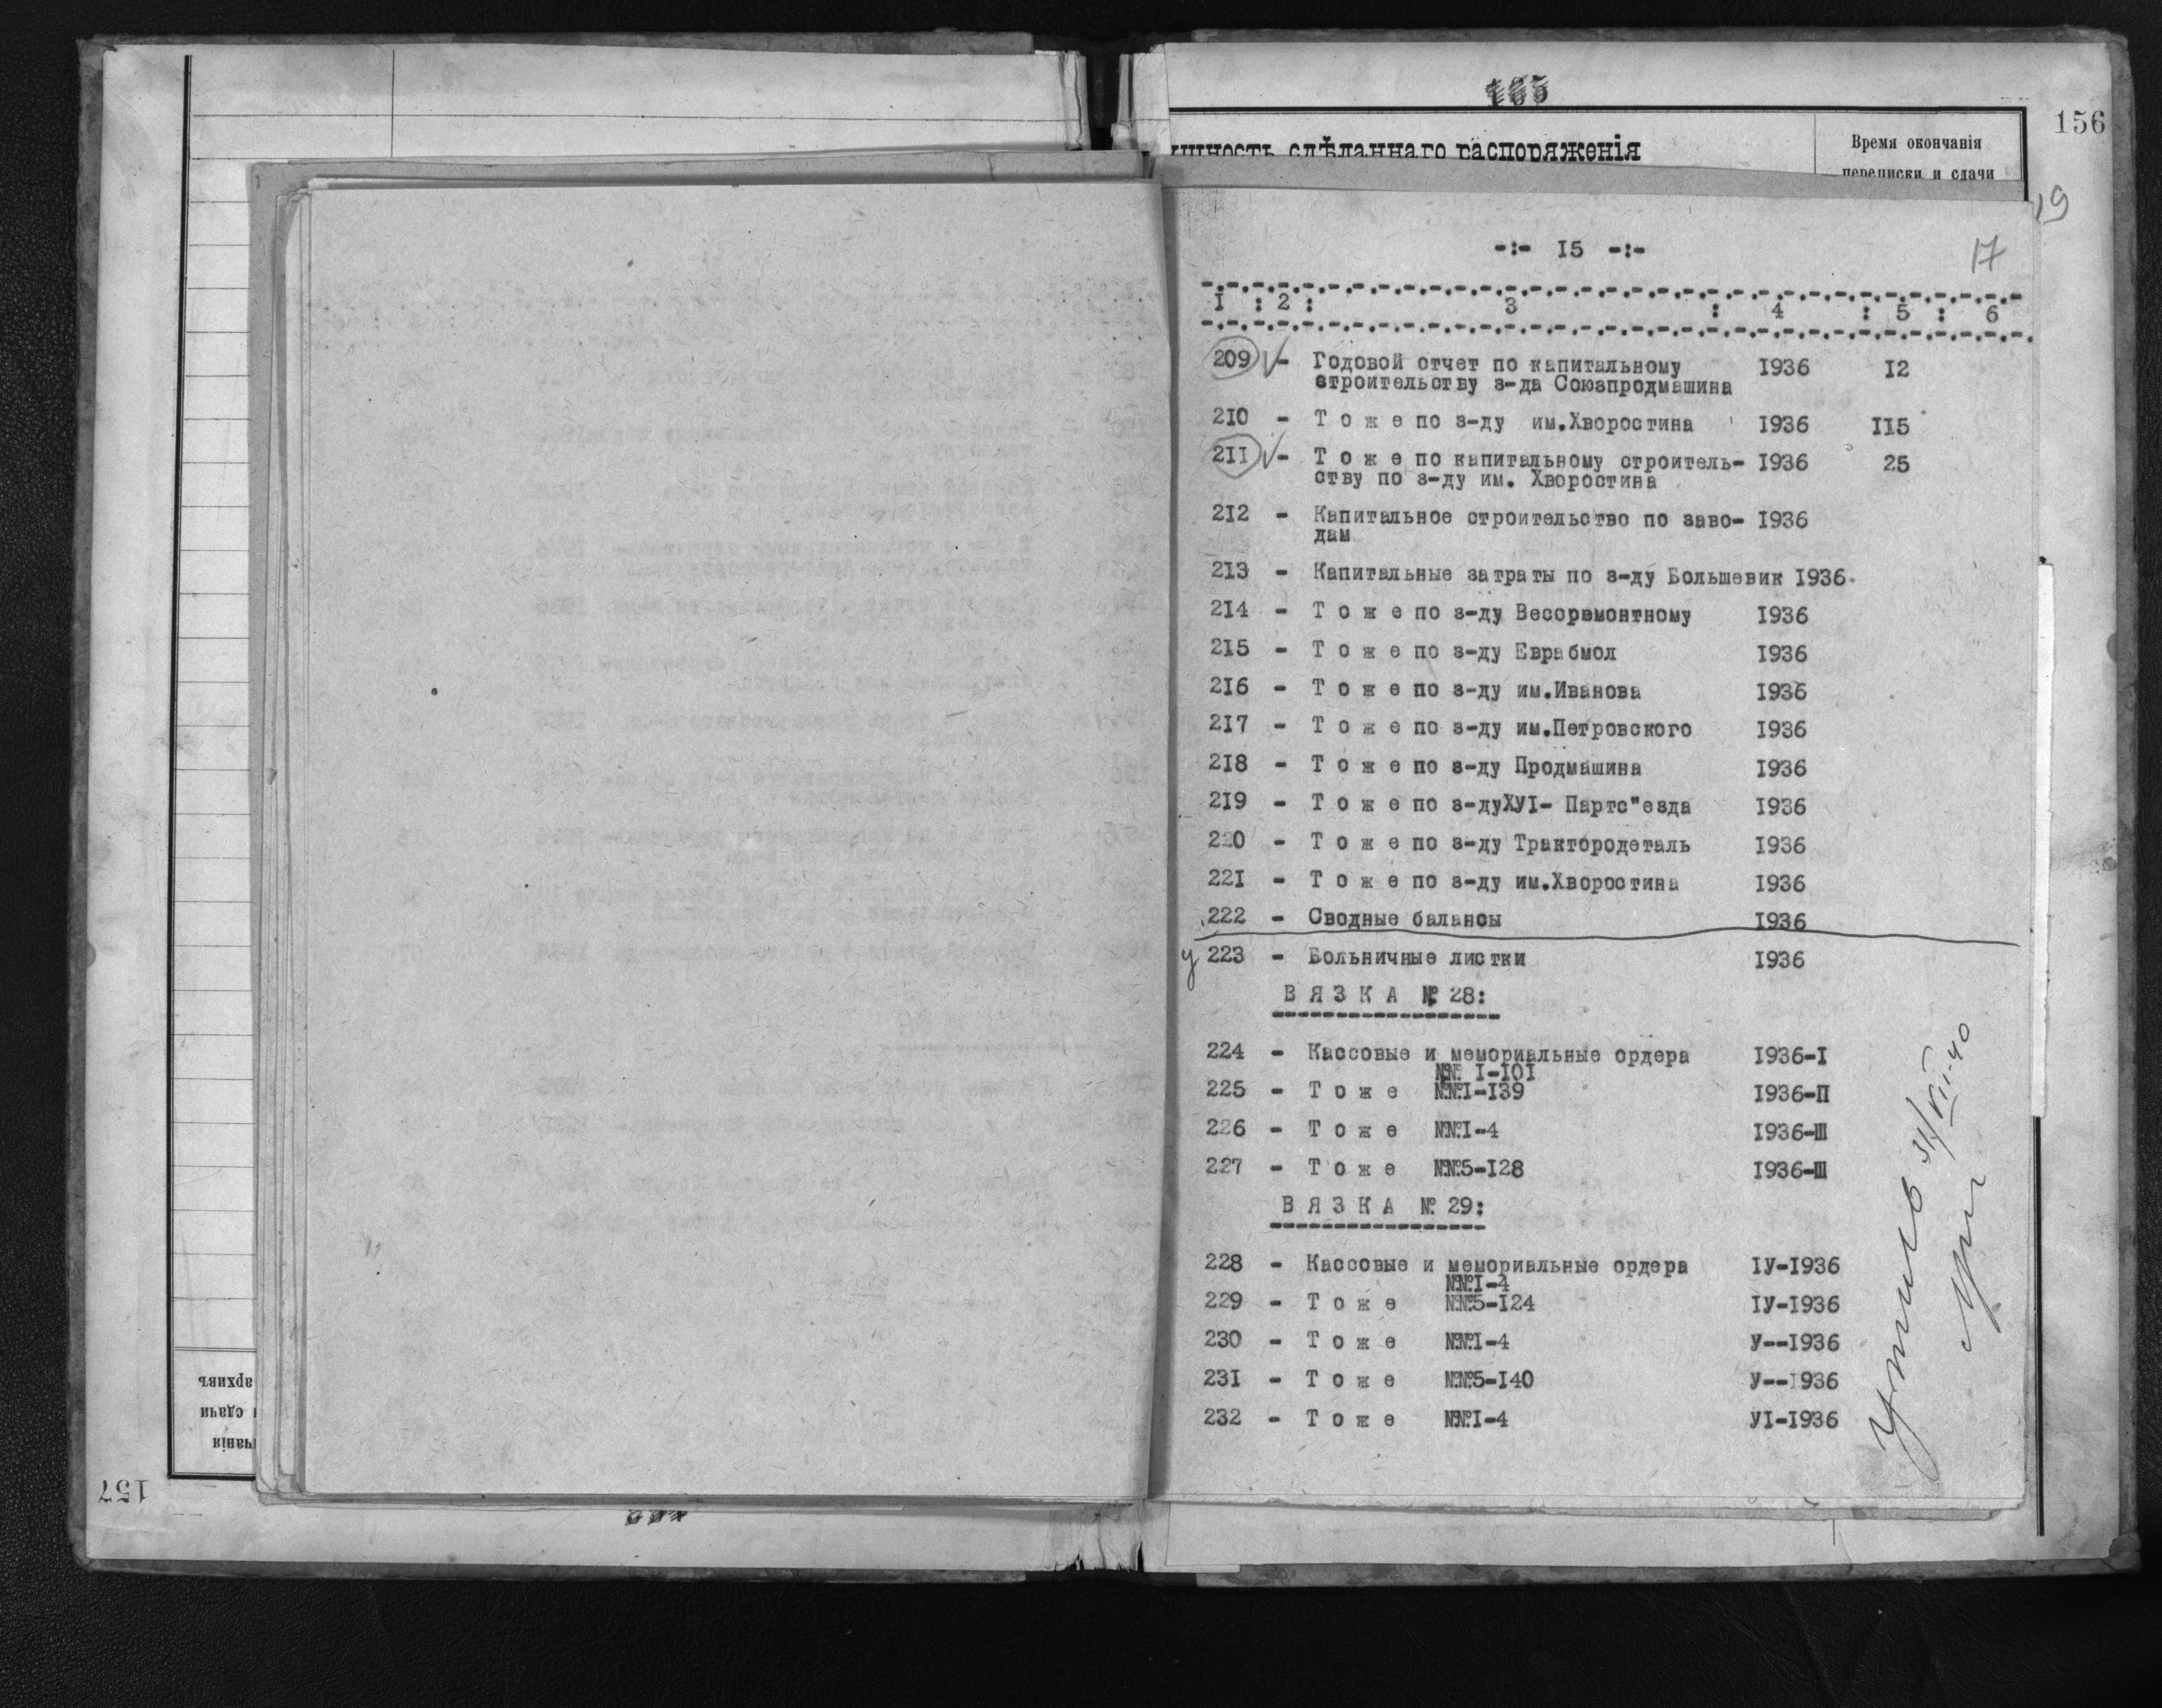 165
156
ущность сдѣланнаго распоряженія
Время окончанія
переписки и сдачи
19
-:- I5 -:-
17
I : 2 : 3 : 4 : 5 : 6
209 - Годовой отчет по капитальному I936 I2
строительству з-да Союзпродмашина
2I0 - Т о ж е по з-ду им.Хворостина I936 II5
2II - Т о ж е по капитальному строитель- I936 25
ству по з-ду им. Хворостина
2I2 - Капитальное строительство по заво- I936
дам
2I3 - Капитальные затраты по з-ду Большевик I936
2I4 - Т о ж е по з-ду Весоремонтному I936
2I5 - Т о ж е по з-ду Еврабмол I936
2I6 - Т о ж е по з-ду им.Иванова I936
2I7 - Т о ж е по з-ду им.Петровского I936
2I8 - Т о ж е по з-ду Продмашина I936
2I9 - Т о ж е по з-ду ХУI- Партс"езда I936
220 - Т о ж е по з-ду Трактородеталь I936
22I - Т о ж е по з-ду им.Хворостина I936
222 - Сводные балансы I936
у 223 - Больничные листки I936
В Я З К А № 28:
224 - Кассовые и мемориальные ордера I936-I
№№ I-I0I
225 - Т о ж е №№I-I39 I936-П
226 - Т о ж е №№I-4 I936-Ш
227 - Т о ж е №№5-I28 I936-Ш
В Я З К А № 29:
228 - Кассовые и мемориальные ордера IУ-I936
№№I-4
229 - Т о ж е №№5-I24 IУ-I936
230 - Т о ж е №№I-4 У--I936
23I - Т о ж е №№5-I40 У--I936
232 - Т о ж е №№I-4 УI-I936
Утиль 31/VII-40
архивъ
и сдачи
чанія
157